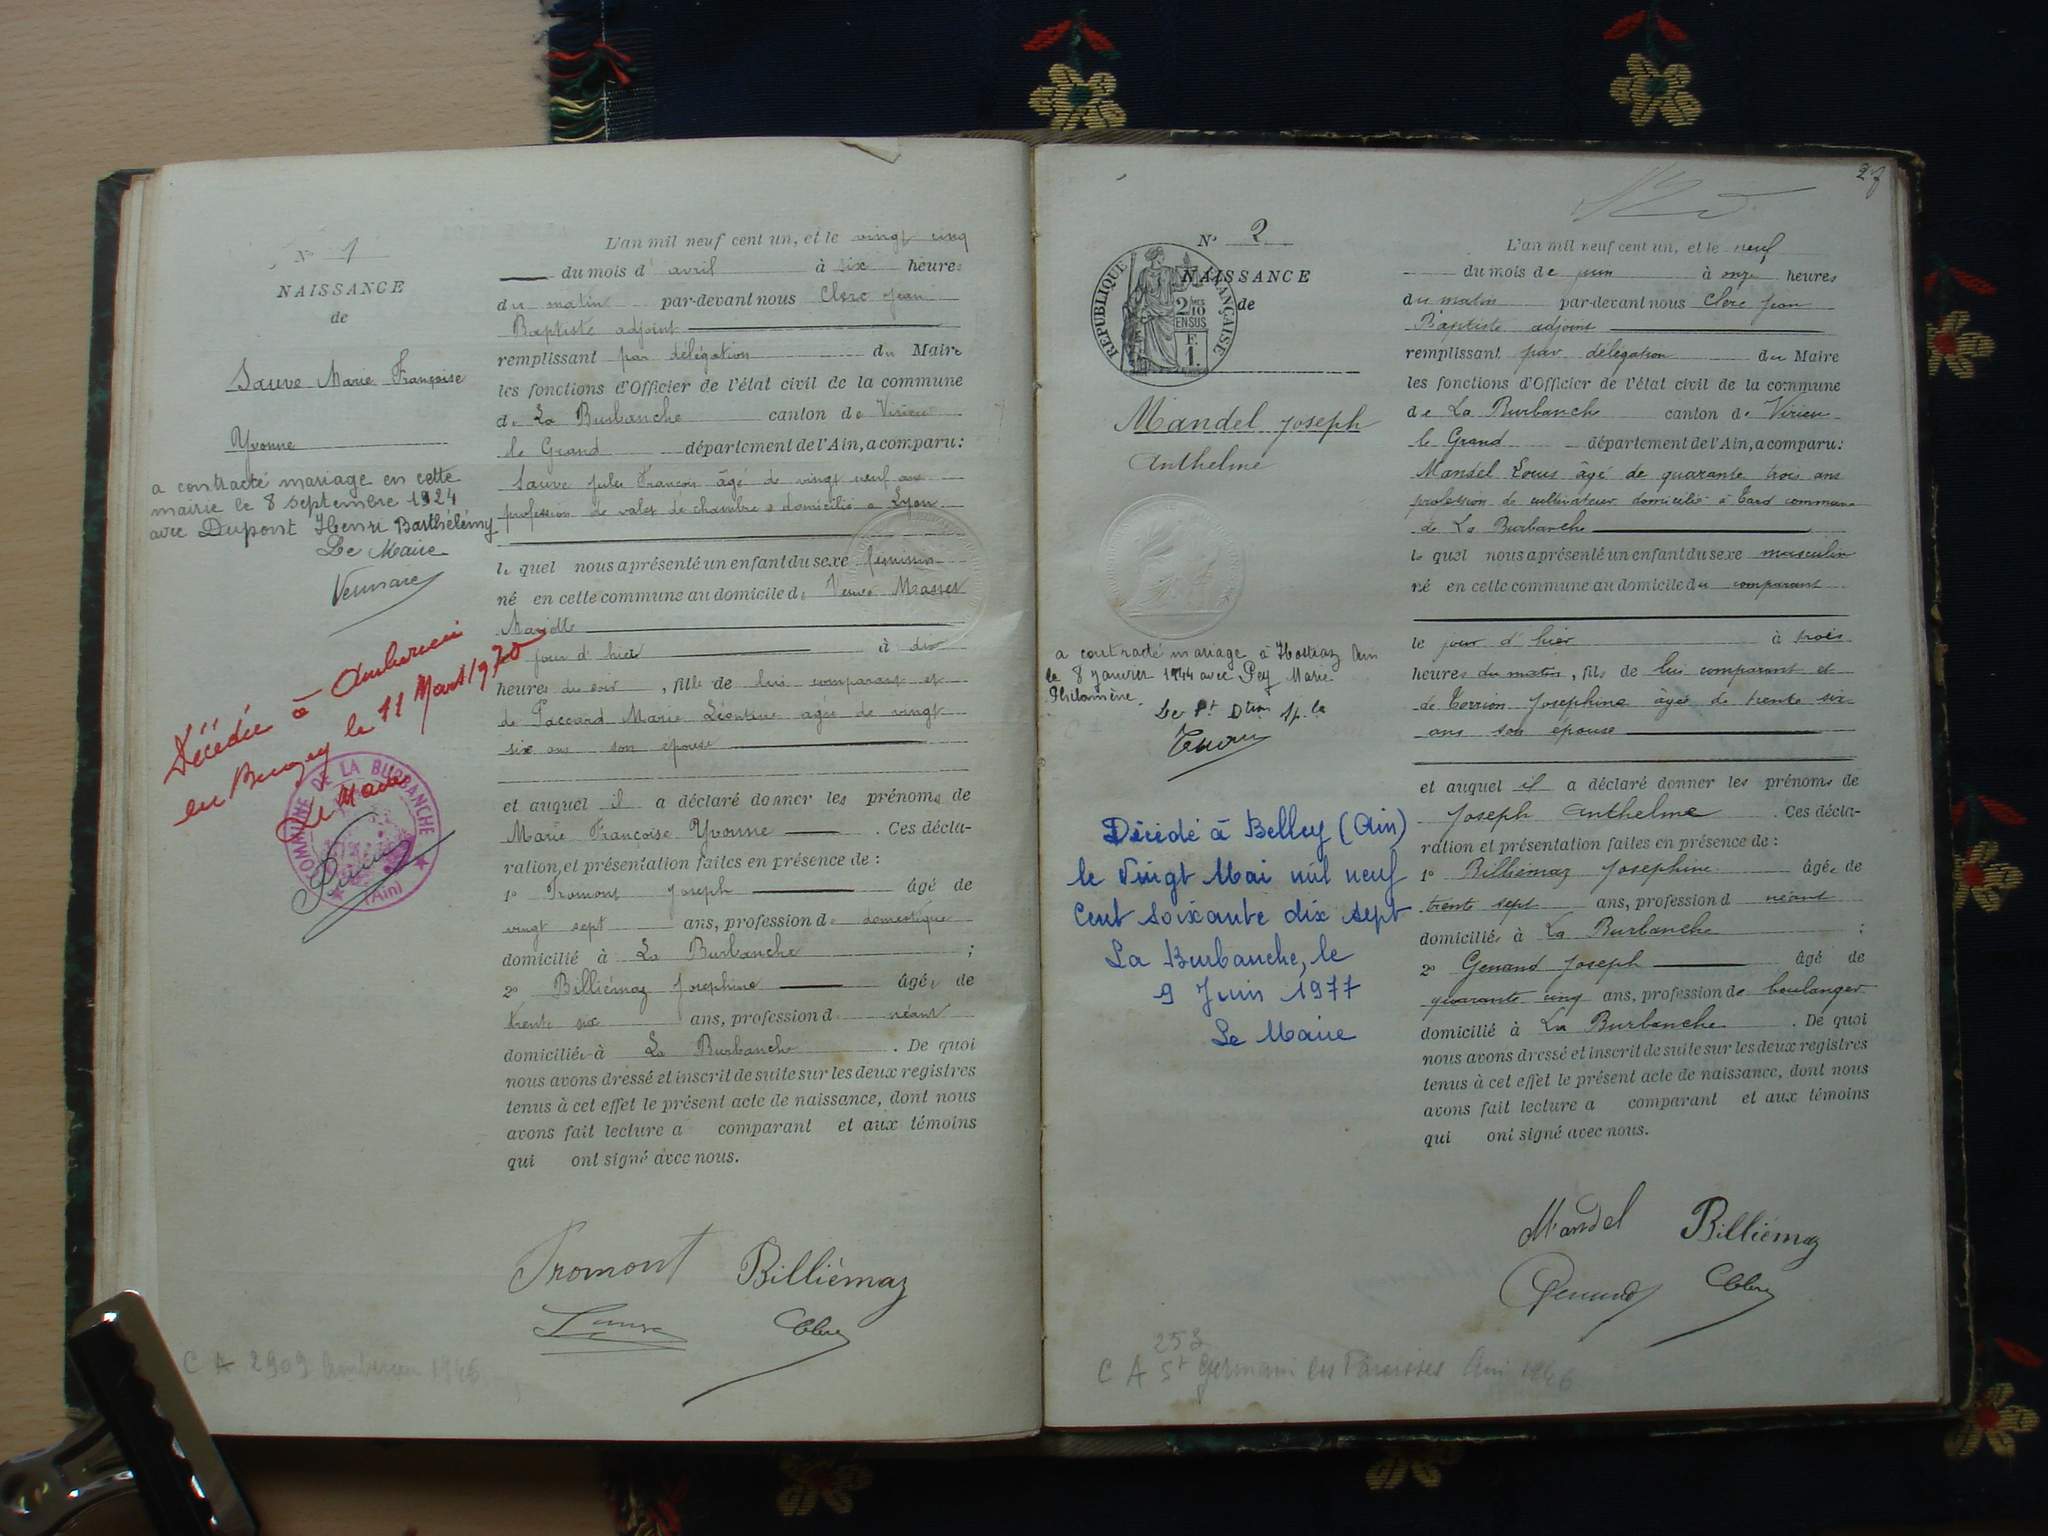 N° 1
NAISSANCE
de
Sauve Marie Françoise
Yvonne
a contracté mariage en cette
mairie le 8 septembre 1924
avec Dupont Henri Barthélémy
Le Maire
Décédée à Ambérieu
en Bugey le 11 Mars 1970
Le Maire
COMMUNE DE LA BURBANCHE
(Ain)
L'an mil neuf cent un, et le vingt cinq
du mois d'avril à six heures
du matin par-devant nous Clerc Jean
Baptiste adjoint
remplissant par délégation du Maire
les fonctions d'Officier de l'état civil de la commune
de La Burbanche canton de Virieu
le Grand département de l'Ain, a comparu:
Sauve Jules François âgé de vingt neuf ans
profession de valet de chambre domicilié à Lyon
le quel nous a présenté un enfant du sexe féminin
né en cette commune au domicile de Veuve Masset
Mariette
jour d'hier à dix
heures du soir, fille de lui comparant et
de Paccard Marie Léontine agée de vingt
six ans son épouse
et auquel il a déclaré donner les prénoms de
Marie Françoise Yvonne . Ces décla-
ration et présentation faites en présence de :
1° Fromont Joseph âgé de
vingt sept ans, profession de domestique
domicilié à La Burbanche ;
2° Billiémaz Josephine âgée de
trente six ans, profession d néant
domiciliée à La Burbanche . De quoi
nous avons dressé et inscrit de suite sur les deux registres
tenus à cet effet le présent acte de naissance, dont nous
avons fait lecture a comparant et aux témoins
qui ont signé avec nous.
Fromont Billiémaz
Sauve Clerc
C A 2909 Amberieu 1946
27
N° 2
NAISSANCE
de
REPUBLIQUE FRANÇAISE
2/10
EN SUS
F.
1.
Mandel Joseph
Anthelme
a contracté mariage à Hostiaz Ain
le 8 janvier 1944 avec Pey Marie
Philomène.
Décédé à Belley (Ain)
le Vingt Mai mil neuf
Cent soixante dix sept
La Burbanche, le
9 Juin 1977
Le Maire
L'an mil neuf cent un, et le neuf
du mois de juin à onze heures
du matin par-devant nous Clerc Jean
Baptiste adjoint
remplissant par délégation du Maire
les fonctions d'Officier de l'état civil de la commune
de La Burbanche canton de Virieu
le Grand département de l'Ain, a comparu:
Mandel Louis âgé de quarante trois ans
profession de cultivateur domicilié à Tard commune
de La Burbanche
le quel nous a présenté un enfant du sexe masculin
né en cette commune au domicile du comparant
le jour d'hier à trois
heures du matin, fils de lui comparant et
de Terrion Josephine agée de trente six
ans son épouse
et auquel il a déclaré donner les prénoms de
Joseph Anthelme . Ces décla-
ration et présentation faites en présence de :
1° Billiémaz Josephine âgée de
trente sept ans, profession d néant
domiciliée à La Burbanche ;
2° Genand Joseph âgé de
quarante cinq ans, profession de boulanger
domicilié à La Burbanche . De quoi
nous avons dressé et inscrit de suite sur les deux registres
tenus à cet effet le présent acte de naissance, dont nous
avons fait lecture a comparant et aux témoins
qui ont signé avec nous.
Mandel Billiémaz
Genand Clerc
253
C A St Germain les Paroisses Ain 1946